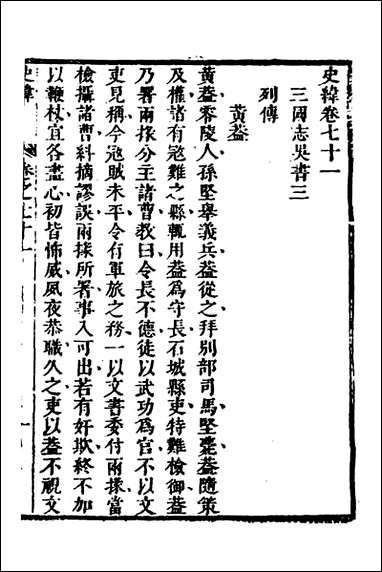 史緯卷七十一
三國志吳書三
列傳
黃蓋
黃蓋零陵人孫堅舉義兵蓋從之拜別部司馬堅薨蓋隨策
及權諸有寇難之縣輒用蓋為守長石城縣吏特難檢御蓋
乃署兩掾分主諸曹教曰令長不德徒以武功為官不以文
吏見稱今寇賊未平令有軍旅之務一以文書委付兩掾當
檢攝諸曹糾摘謬誤兩掾所署事入可出若有奸欺終不加
以鞭杖宜各盡心初皆怖威夙夜恭職久之吏以蓋不視文
史緯